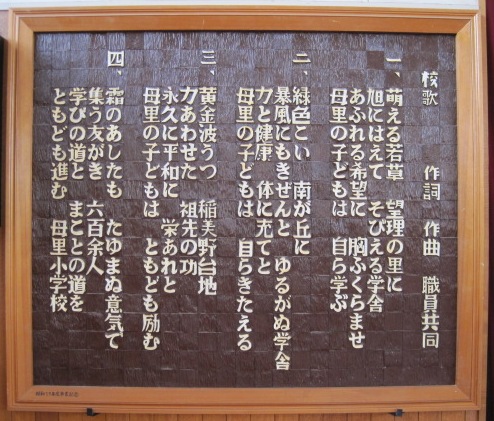 校歌 作詞 作曲 職員共同
一、萌える若草 望理の里に
旭にはえて そびえる学舎
あふれる希望に 胸ふくらませ
母里の子どもは 自ら学ぶ
二、緑色こい 南が丘に
暴風にもきぜんと ゆるがぬ学舎
力と健康 体に充てと
母里の子どもは 自らきたえる
三、黄金波うつ 稲美野台地
力あわせた 祖先の功
永久に平和に 栄あれと
母里の子どもは ともども励む
四、霜のあしたも たゆまぬ意気で
集う友がき 六百余人
学びの道と まことの道を
ともども進む 母里小学校